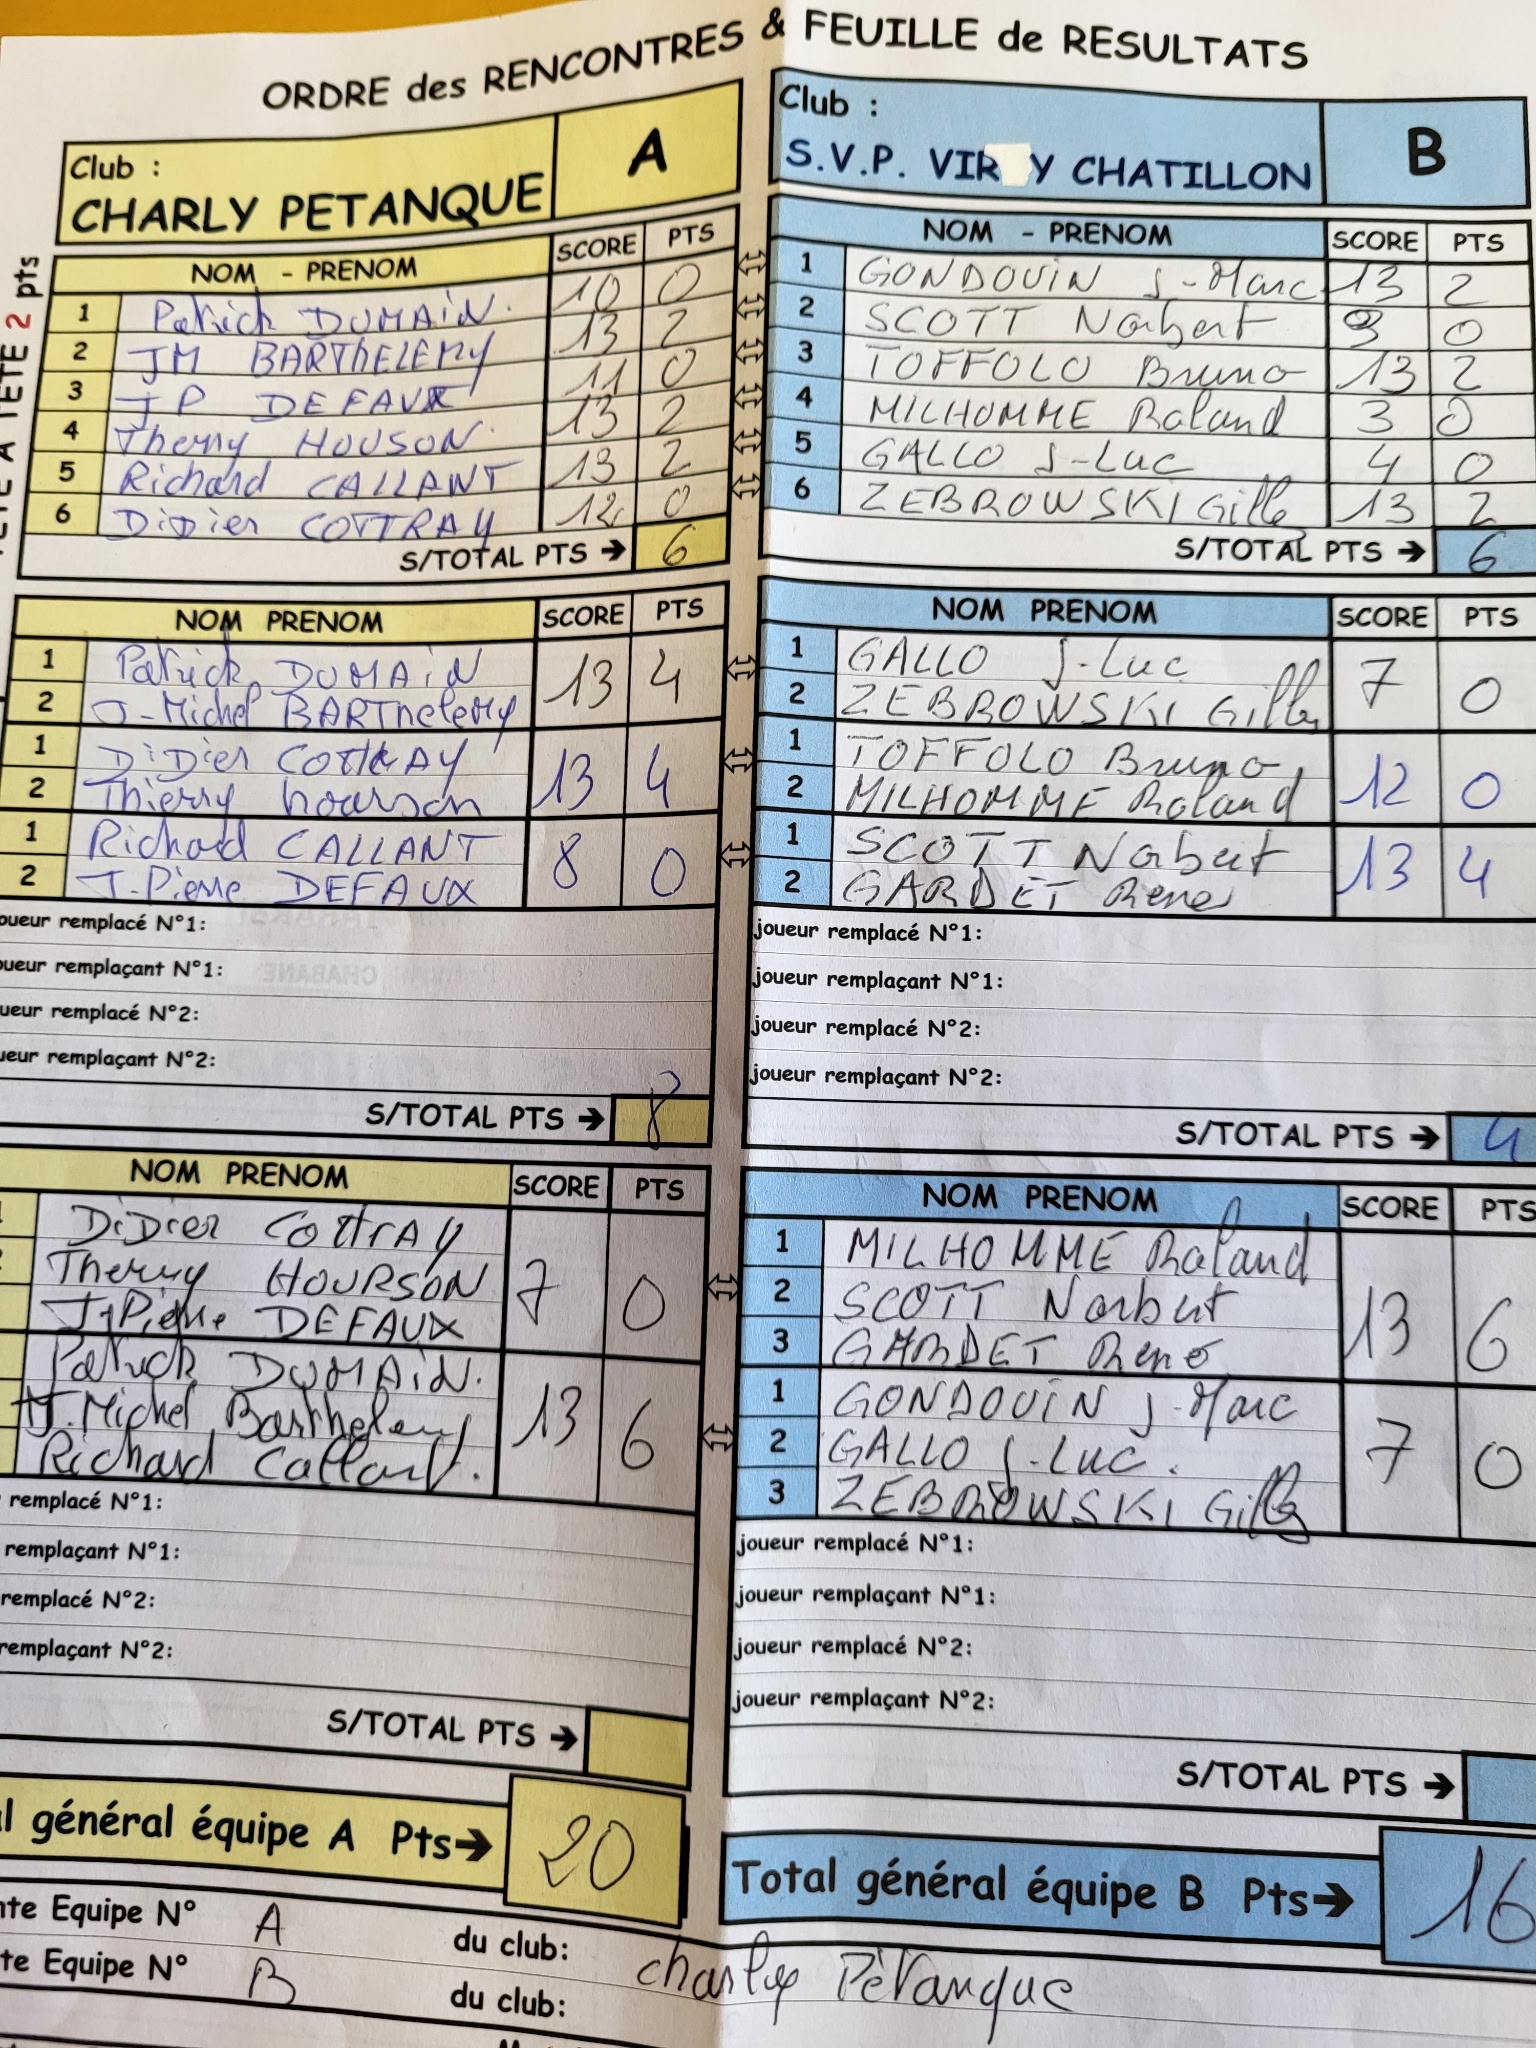 ORDRE des RENCONTRES & FEUILLE de RESULTATS
Club :
CHARLY PETANQUE
A
TETE A TETE 2 pts
NOM - PRENOM SCORE PTS
1 Patrick DUMAIN. 10 0
2 JM BARTHELEMY 13 2
3 JP DEFAUX 11 0
4 Therry HOUSON 13 2
5 Richard CALLANT 13 2
6 Didier COTTRAY 12 0
S/TOTAL PTS → 6
NOM PRENOM SCORE PTS
1 Patrick DUMAIN 13 4
2 J-Michel BARThelemy
1 Didier COTTRAY 13 4
2 Thierry hourson
1 Richard CALLANT 8 0
2 J.Pierre DEFAUX
joueur remplacé N°1:
joueur remplaçant N°1:
joueur remplacé N°2:
joueur remplaçant N°2:
S/TOTAL PTS → 8
NOM PRENOM SCORE PTS
DiDier COttrAy 7 0
Therry HOURSON
J-Pierre DEFAUX
Patrick DUMAIN. 13 6
J.Michel Barthelemy
Richard Callant.
remplacé N°1:
remplaçant N°1:
remplacé N°2:
remplaçant N°2:
S/TOTAL PTS →
l général équipe A Pts→ 20
Club :
S.V.P. VIR Y CHATILLON
B
NOM - PRENOM SCORE PTS
1 GONDOUIN J-Marc 13 2
2 SCOTT Norbert 9 0
3 TOFFOLO Bruno 13 2
4 MILHOMME Roland 3 0
5 GALLO J-Luc 4 0
6 ZEBROWSKI Gilles 13 2
S/TOTAL PTS → 6
NOM PRENOM SCORE PTS
1 GALLO J-Luc 7 0
2 ZEBROWSKI Gilles
1 TOFFOLO Bruno 12 0
2 MILHOMME Roland
1 SCOTT Norbert 13 4
2 GARDET Rene
joueur remplacé N°1:
joueur remplaçant N°1:
joueur remplacé N°2:
joueur remplaçant N°2:
S/TOTAL PTS → 4
NOM PRENOM SCORE PTS
1 MILHOMME Roland 13 6
2 SCOTT Norbert
3 GARDET Rene
1 GONDOUIN J-Marc 7 0
2 GALLO J-LUC.
3 ZEBROWSKI Gilles
joueur remplacé N°1:
joueur remplaçant N°1:
joueur remplacé N°2:
joueur remplaçant N°2:
S/TOTAL PTS →
Total général équipe B Pts→ 16
nte Equipe N° A du club: charly Pétanque
te Equipe N° B du club: